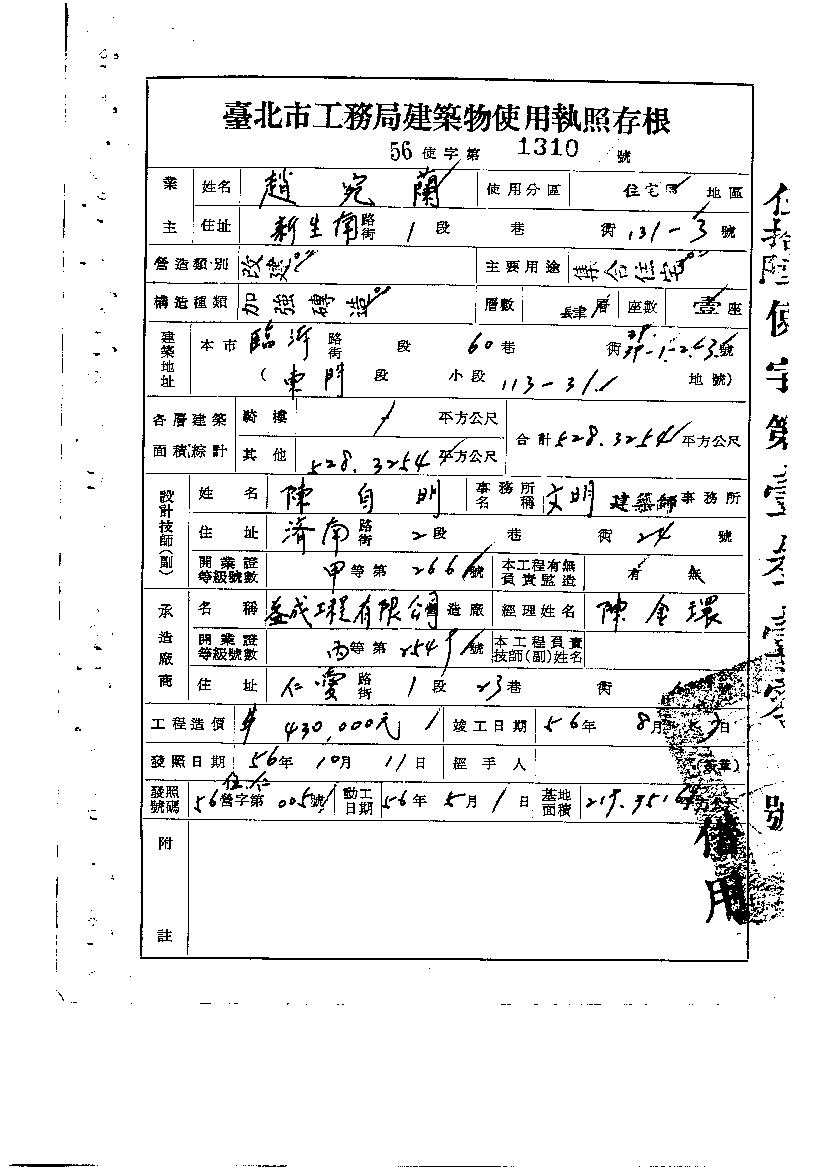 臺北市工務局建築物使用執照存根
56使字第 1310 號
業主 姓名 趙宛蘭 使用分區 住宅區 地區
住址 新生南路街 1段 巷 街 131-3號
營造類別 改建 主要用途 集合住宅
構造種類 加強磚造 層數 肆層 座數 壹座
建築地址 本市 臨沂路街 段 60巷 街 號
(東門段 小段 113-31 地號)
各層建築面積綜計 騎樓 / 平方公尺 合計 528.3254平方公尺
其他 528.3254平方公尺
設計技師(副) 姓名 陳自明 事務所名稱 文明建築師事務所
住址 濟南路街 2段 巷 街 24號
開業證等級號數 甲等第266號 本工程有無負責監造 有 無
承造廠商 名稱 益成工程有限公司 造廠 經理姓名 陳金環
開業證等級號數 丙等第 號 本工程負責技師(副)姓名
住址 仁愛路街 1段 23巷 街 號
工程造價 430,000元 竣工日期 56年 8月 日
發照日期 56年10月11日 經手人 (簽章)
發照號碼 56營字第005號 動工日期 56年5月1日 基地面積 219.3516
附註
借用
伍拾陸使字第壹叁壹零號